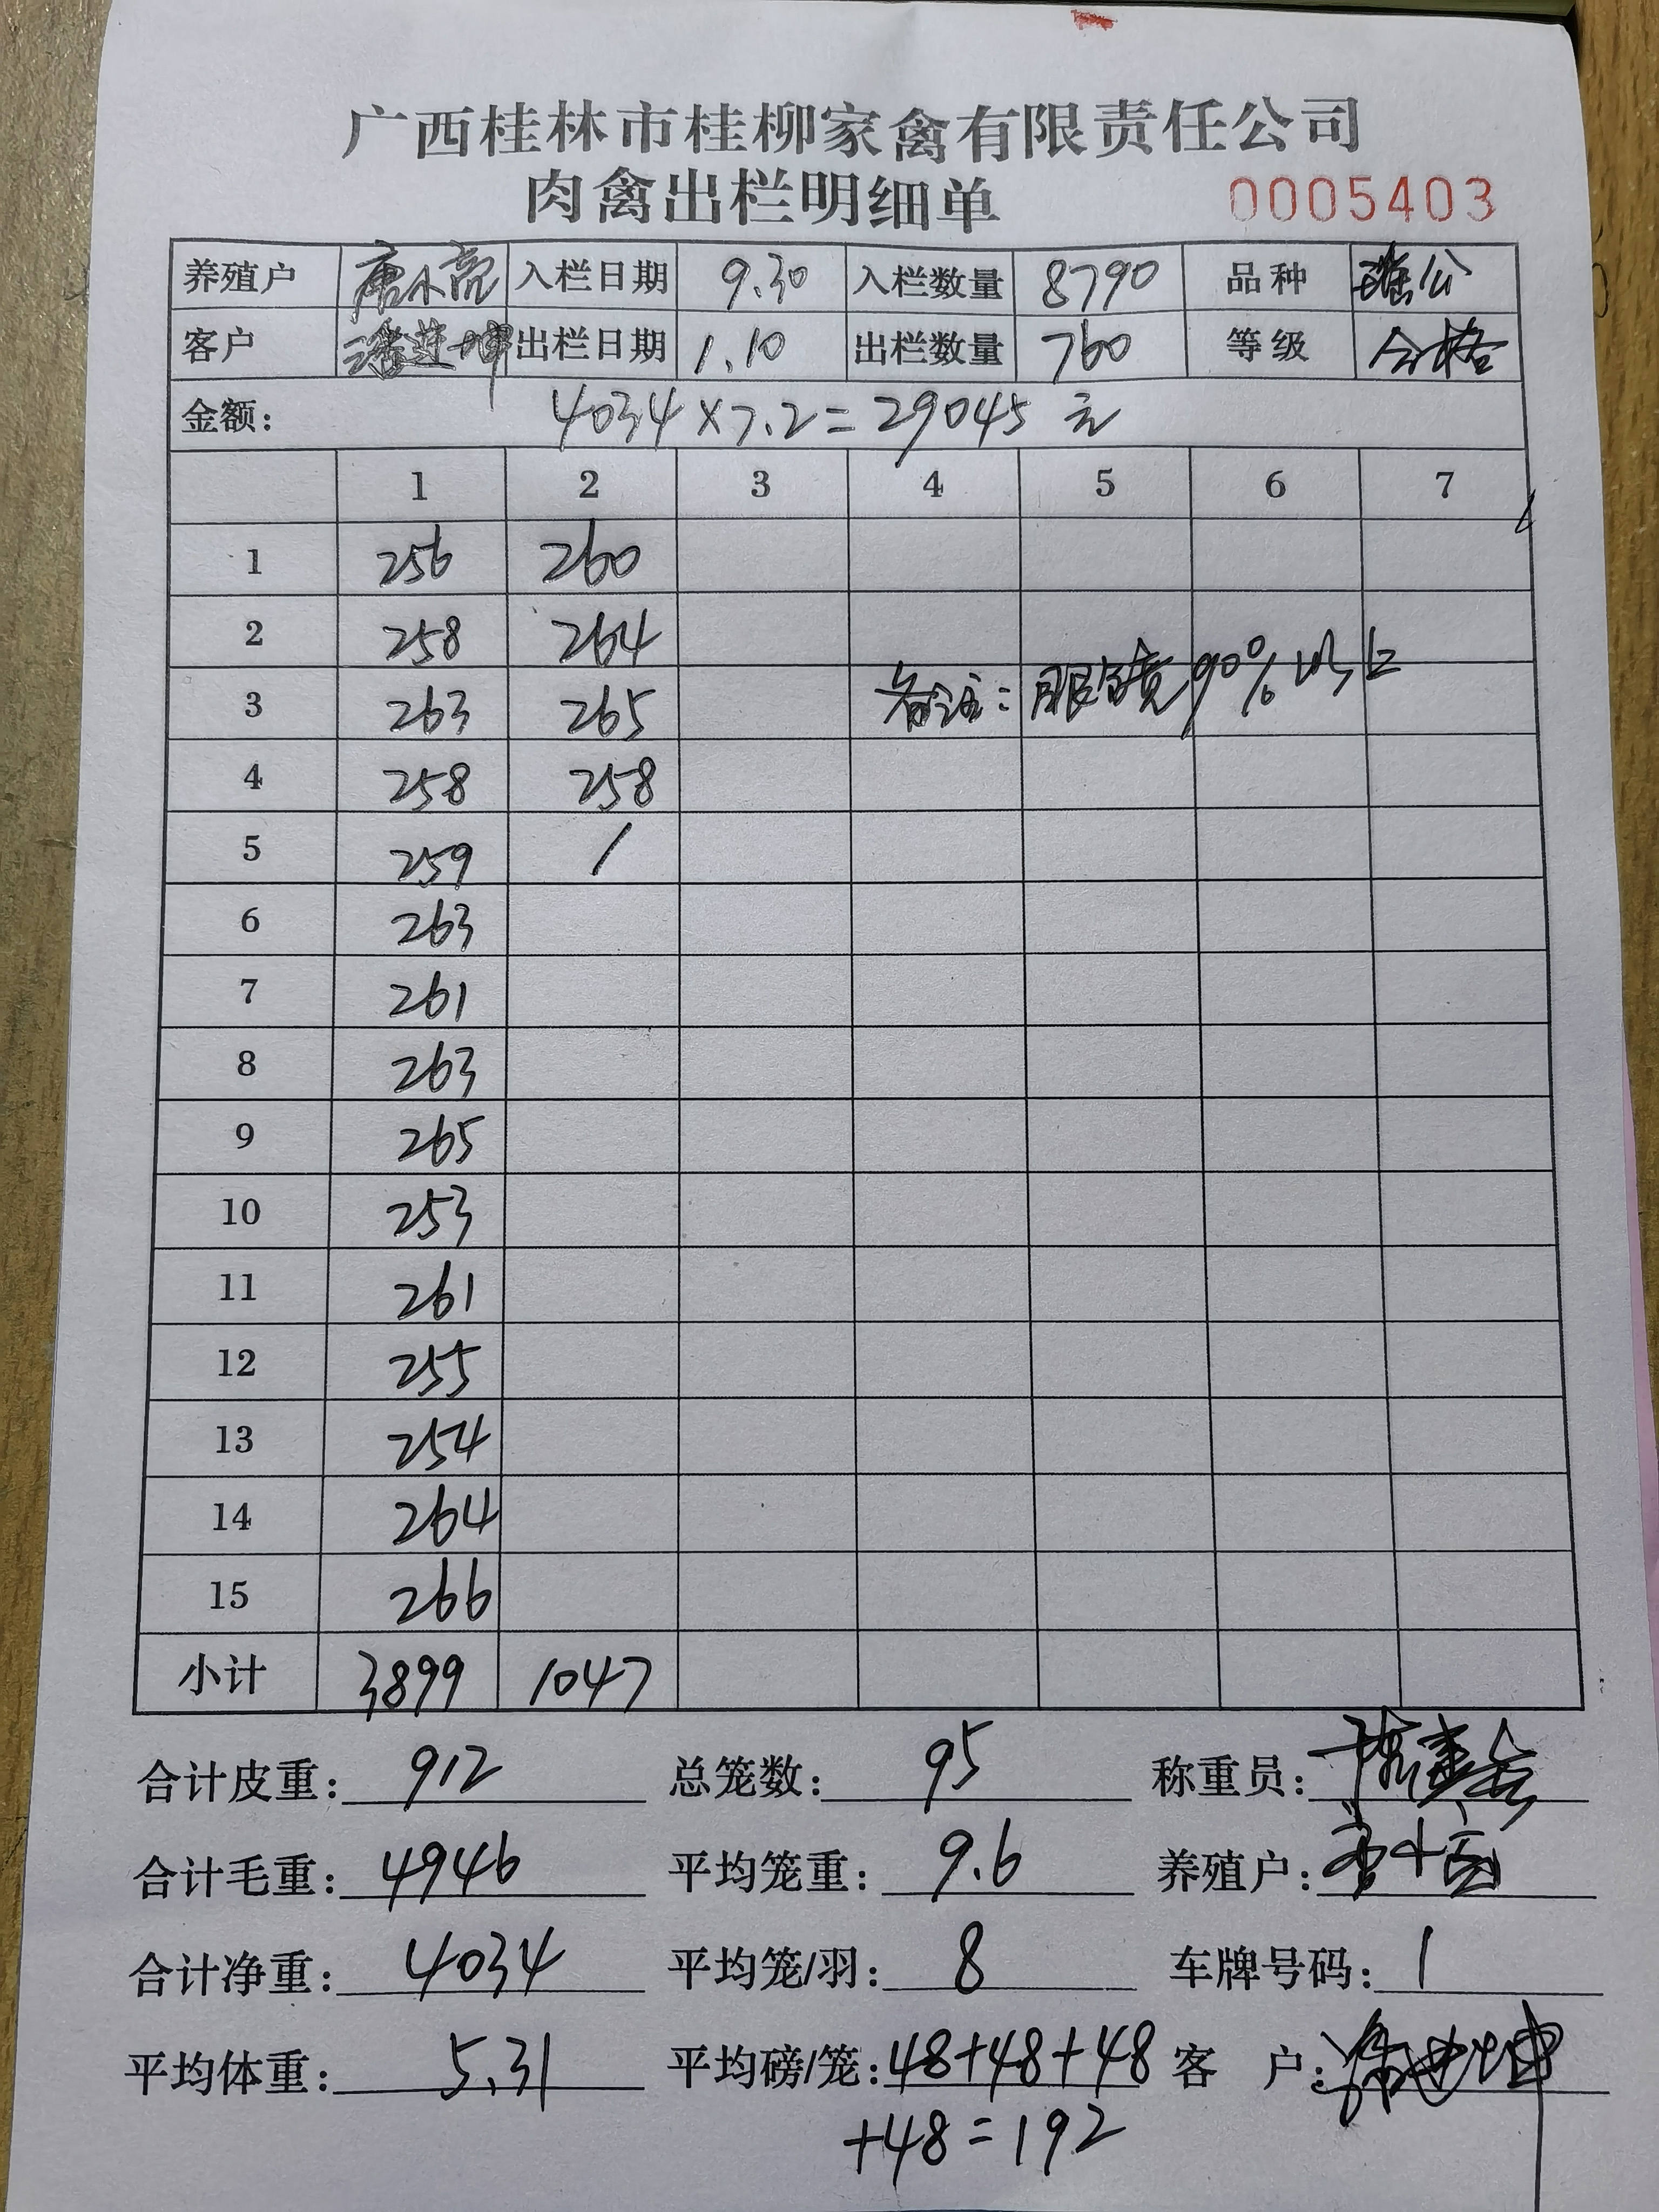 广西桂林市桂柳家禽有限责任公司
肉禽出栏明细单 0005403
养殖户 唐小亮 入栏日期 9.30 入栏数量 8790 品种 瑶公
客户 潘莲坤 出栏日期 1.10 出栏数量 760 等级 合格
金额: 4034×7.2=29045元
1 2 3 4 5 6 7
1 256 260
2 258 264
3 263 265 备注: 90%以上
4 258 258
5 259 /
6 263
7 261
8 263
9 265
10 253
11 261
12 255
13 254
14 264
15 266
小计 3899 1047
合计皮重: 912 总笼数: 95 称重员:
合计毛重: 4946 平均笼重: 9.6 养殖户:
合计净重: 4034 平均笼/羽: 8 车牌号码: 1
平均体重: 5.31 平均磅/笼: 48+48+48 客 户:
+48=192